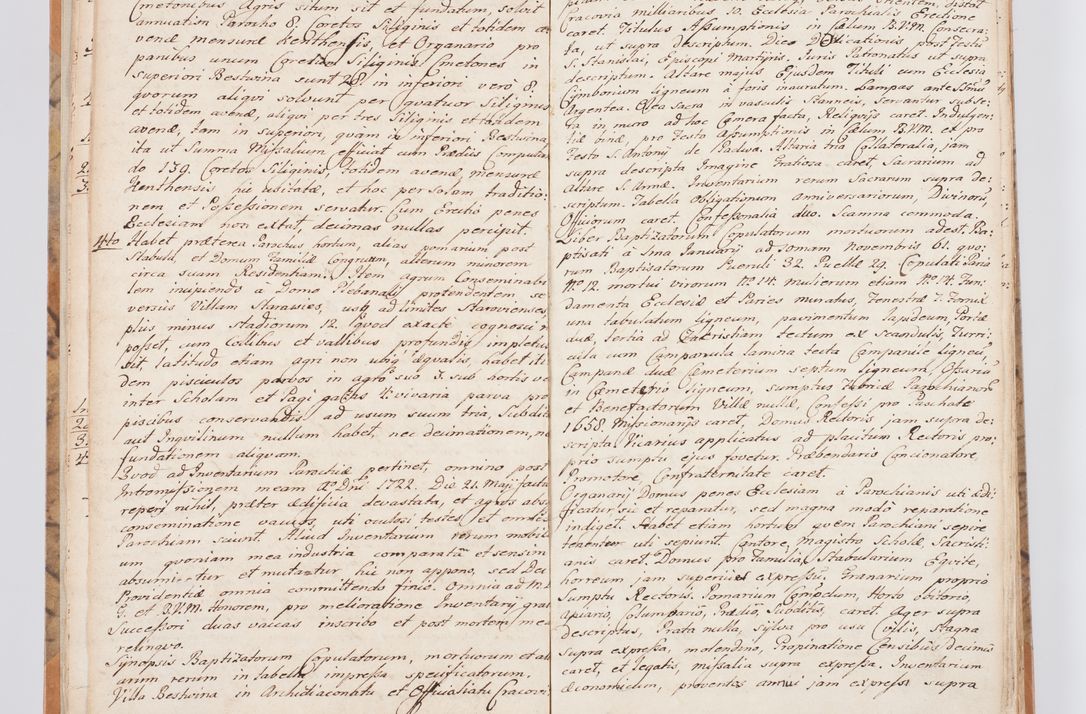 cmetonibus Agris situm sit et fundatum, solvit
annuatim Parocho 8. Coretos Siliginis et totidem
avenæ mensuræ Kenthensis, et Organario pro
panibus unum Coretum Siliginis. Cmetones in
superiori Bestwina sunt 28. in inferiori verò 8.
quorum aliqui solvunt per quatuor Siliginis
et totidem avenæ, aliqui per tres Siliginis et totidem
avenæ, tam in superiori, quàm in inferiori Bestwina
ita ut Summa Missalium efficiat cum Prædiis Computan
do 139. Coretos Siliginis, totidem avenæ, mensuræ
Kenthensis hic usitatæ, et hoc per solam traditio-
nem et Possessionem servatur. Cum Erectio penes
Ecclesiam non extat, decimas nullas percipit.
4to Habet præterea Parochus hortum, alias pomarium post
Stabula et Domum Familiæ Congruum, alterum minorem
circa suam Residentiam. Item agrum Conseminabi
lem incipiendo à Domo Plebanali protendentem se
versus Villam Starawies, usq ad limites Starovienses
plus minus Stadiorum 12. quod exacte cognosci n
posset, cum Collibus et vallibus profundis impletus
sit, latitudo etiam agri non ubiq æqualis, habet iti
dem pisciculos parvos in agro suo 3. sub hortis ve
inter Scholam et Pagi vivaria parva pro
piscibus conservandis ad usum suum tria, Subdit
aut Inquilinum nullum habet, nec decimationem, ne
fundationem aliquam.
Quod ad Inventarium Parochiæ pertinet, omnino post
Intromissionem meam Aº Dni 1722. Die 21 Maji facta
reperi nihil, præter ædificia devastata, et agros abs
conseminatione vacuos, uti oculati testes et omnes
Parochiam sciunt. Aliud Inventarium rerum mobili
um quoniam mea industria comparatum et sensim
absumitur et mutantur hic non appono, sed Dei
Providentiæ omnia committendo finio. Omnia ad M. D
G. et B.V.M. Honorem, pro melioratione Inventarij grat
Successori duas vaccas inscribo et post mortem mea
relinquo.
Synopsis Baptizatorum Copulatorum, mortuorum et ali
arum rerum in tabella impressa specificatorum.
Villa Bestwina in Archidiaconatu et Officialatu Cracovi
Cracovia milliaribus 10. Ecclesia Parochialis Erectione
caret. Titulus Assumptionis in Cælum B.V.M. Consecra-
ta, ut supra descriptum. Dies Dedicationis post Festu
S. Stanislai, Episcopi Martyris. Juris Patronatus ut supra
descriptum. Altare majus Ejusdem Tituli cum Ecclesia
Cymborium ligneum à foris inauratum. Lampas ante Ssmu
Argentea. Olea Sacra in vasculis Stanneis, servantur subse
ta in muro ad hoc Camera facta, Reliquijs caret. Indulgen-
tiæ binæ, pro Festo Assumptionis in Cælum B.V.M. ex pro
Festo S. Antonij de Padua. Altaria tria Collateralia, jam
supra descripta Imagine Gratiosa caret. Sacrarium ad
Altare S. Annæ. Inventarium rerum Sacrarum supra de-
scriptum. Tabella Obligationum anniversariorum, Divinoru
Officiorum caret. Confessionalia duo. Scamna commoda.
Liber Baptizatorum Copulatorum mortuorum adest. Ba-
ptisati à 1ma Januarii ad 1omam Novembris 61. quo-
rum Baptisatorum Pueruli 32. Puellæ 29. Copulati Paria
Nº 12. mortui virorum Nº 14. mulierum etiam Nº 14. Fun-
damenta Ecclesiæ et Paries muratus, Fenestræ 7. Fornix
una tabulatum ligneum, pavimentum lapideum, Portæ
duæ, tertia ad Zachristiam tectum ex scandulis, Turri-
cula cum Campanula lamina tecta Campanile ligneu,
Campanæ duæ Cæmeterium septum ligneum, Ossariu
in Cæmeterio ligneum, sumptus Fabricæ Parochianor
et Benefactorum Villæ nullæ, Confessi pro Paschate
1658. Missionarijs caret, Domus Rectoris jam supra de-
scripta, Vicarius applicatus ad placitum Rectoris pro-
prio sumptu ejus fovetur. Præbendario Concionatore,
Promotore, Confraternitate caret.
Organarij Domus penes Ecclesiam à Parochianis uti ædi-
ficatur, sic et reparatur, sed magna modò reparatione
indiget. Habet etiam hortulum quem Parochiani sepire
tenentur uti sepiunt. Cantore, Magistro Scholæ, Sacristi-
anis caret. Domus pro Familia, Stabularium Equile,
horreum jam superius expressu. Granarium proprio
Sumptu Rectoris. Pomarium Conspectum, Horto olitorio,
Apiario, Columbario, Prædio, Subditis, caret. Ager supra
descriptus, Prata nulla, sylva pro usu Collis, stagna
supra expressa, molendino, Propinatione Censibus decimis
caret, et legatis, missalia supra expressa. Inventarium
œconomicum, proventus annui jam expressi supra